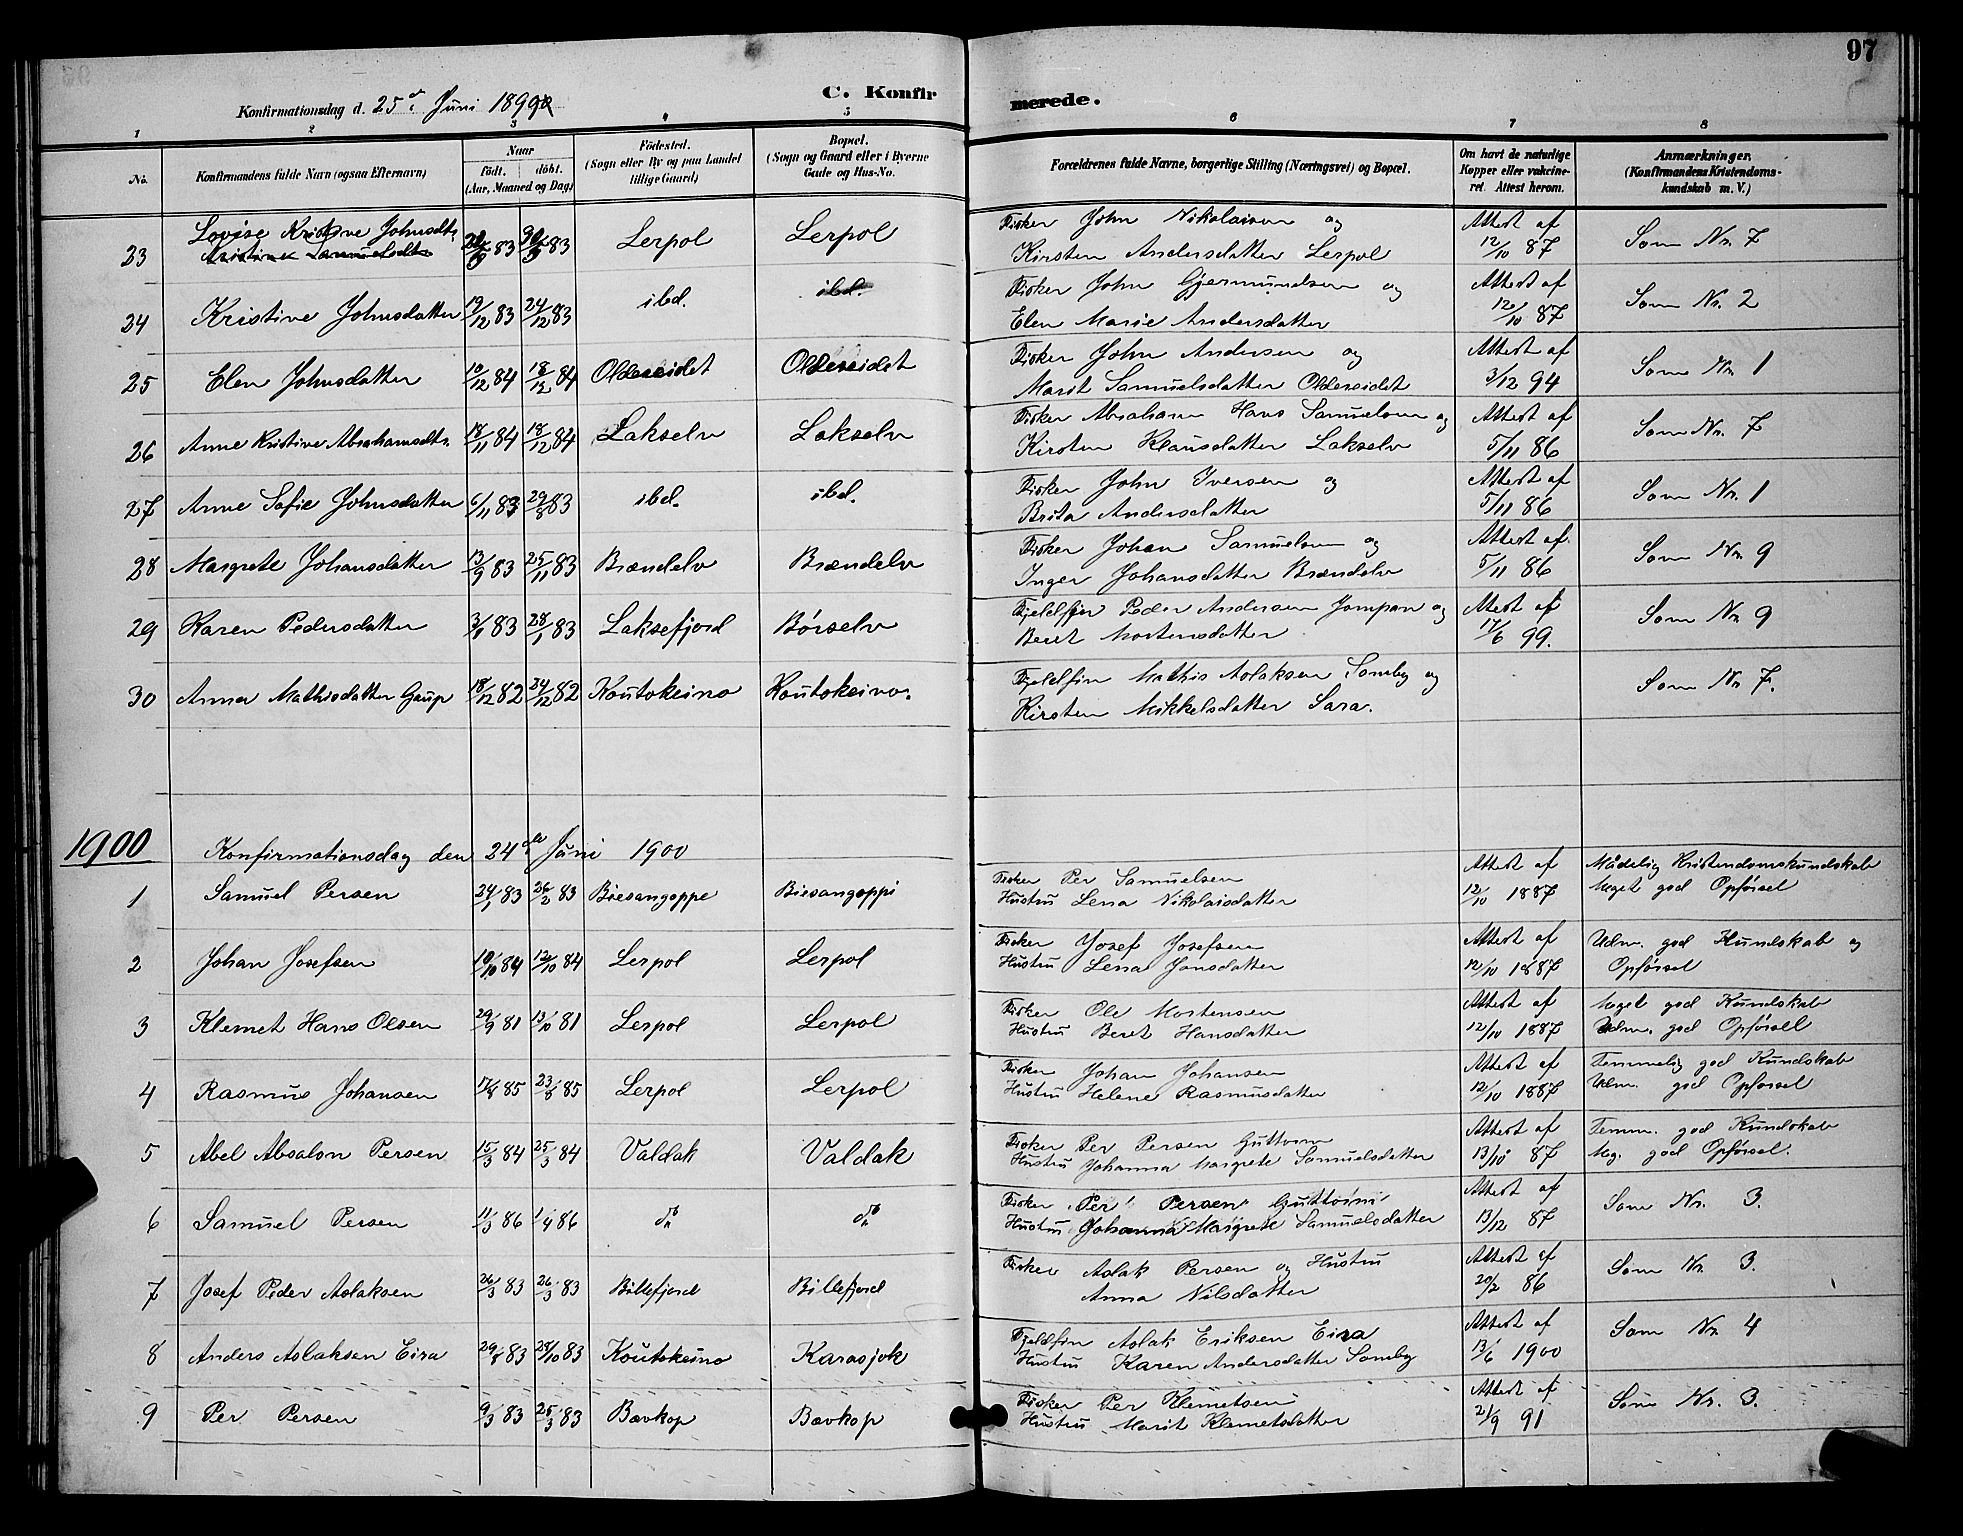 97
Konfirmationsdag d. 25de Juni 1899
C. Konfirmerede.
1 2 3 4 5 6 7 8
No.
Konfirmandens fulde Navn (ogsaa Efternavn)
Naar
født. døbt.
(Aar, Maaned og Dag)
Fødested.
(Sogn eller By og paa Landet
tillige Gaard)
Bopæl.
(Sogn og Gaard eller i Byerne
Gade og Hus-No.
Forældrenes fulde Navne, borgerlige Stilling (Næringsvei) og Bopæl.
Om havt de naturlige
Kopper eller vakcine-
ret. Attest herom.
Anmærkninger.
(Konfirmandens Kristendoms-
kundskab m. V.)
23 Lovise Kristine Johnsdtr. 83 83 Lerpol Lerpol Fisker John Nikolaisen og Attest af Som Nr. 7
Kristine Samuelsdtr. Kirsten Andersdatter Lerpol 12/10 87
24 Kristine Johnsdatter 19/12 83 24/12 83 ibd. ibd. Fisker John Gjermundsen og Attest af Som Nr. 2
Elen Marie Andersdatter 12/10 87
25 Elen Johnsdatter 10/12 84 18/12 84 Oldereidet Oldereidet Fisker John Andersen og Attest af Som Nr. 1
Marit Samuelsdatter Oldereidet 3/12 94
26 Anne Kristine Abrahamsdtr. 18/11 84 18/12 84 Lakselv Lakselv Fisker Abraham Hans Samuelsen og Attest af Som Nr. 7
Kirsten Klausdatter Lakselv 5/11 86
27 Anne Sofie Johnsdatter 6/11 83 29/8 83 ibd. ibd. Fisker John Iversen og Attest af Som Nr. 1
Brita Andersdatter 5/11 86
28 Margrete Johansdatter 13/9 83 25/11 83 Brændelv Brændelv Fisker Johan Samuelsen og Attest af Som Nr. 9
Inger Johansdatter Brændelv 5/11 86
29 Karen Pedersdatter 3/1 83 28/1 83 Laksefjord Børselv Fjeldfin Peder Andersen Jompan og Attest af Som Nr. 9
Beret Mortensdatter 17/6 99.
30 Anna Mathisdatter Gaup 18/12 82 24/12 82 Koutokeino Koutokeino. Fjeldfin Mathis Aslaksen Somby og Som Nr. 7.
Kirsten Mikkelsdatter Sara.
1900 Konfirmationsdag den 24de Juni 1900
1 Samuel Persen 24/1 83 26/2 83 Biesangoppe Biesangoppi Fisker Per Samuelsen Attest af Mådelig Kristendomskundskab
Hustru Lena Nikolaisdatter 12/10 1887 Meget god Opførsel
2 Johan Josefsen 10/10 84 12/10 84 Lerpol Lerpol Fisker Josef Josefsen Attest af Udm. god Kundskab og
Hustru Lena Jonsdatter 12/10 1887 Opførsel
3 Klemet Hans Olsen 29/9 81 13/10 81 Lerpol Lerpol Fisker Ole Mortensen Attest af Meget god Kundskab
Hustru Beret Hansdatter 12/10 1887 Udm. god Opførsel
4 Rasmus Johansen 17/8 85 23/8 85 Lerpol Lerpol Fisker Johan Johansen Attest af Temmelig god Kundskab
Hustru Helene Rasmusdatter 12/10 1887 Udm. god Opførsel
5 Abel Absalon Persen 15/3 84 25/3 84 Valdak Valdak Fisker Per Persen Guttorm Attest af Temm. god Kundskab
Hustru Johanna Margrete Samuelsdatter 13/10 87 Meg. god Opførsel.
6 Samuel Persen 11/3 86 1/4 86 do do Fisker Per Persen Guttorm Attest af Som Nr. 3.
Hustru Johanna Margrete Samuelsdatter 13/12 87
7 Josef Peder Aslaksen 26/3 83 26/3 83 Billefjord Billefjord Fisker Aslak Persen og Hustru Attest af Som Nr. 3.
Anna Nilsdatter 20/2 86
8 Anders Aslaksen Eira 29/8 83 28/10 83 Koutokeino Karasjok Fjeldfin Aslak Eriksen Eira Attest af Som Nr. 4
Hustru Karen Andersdatter Somby 13/6 1900
9 Per Persen 9/3 83 25/3 83 Bævkop Bævkop Fisker Per Klemetsen Attest af Som Nr. 3.
Hustru Marit Klemetsdatter 21/9 91